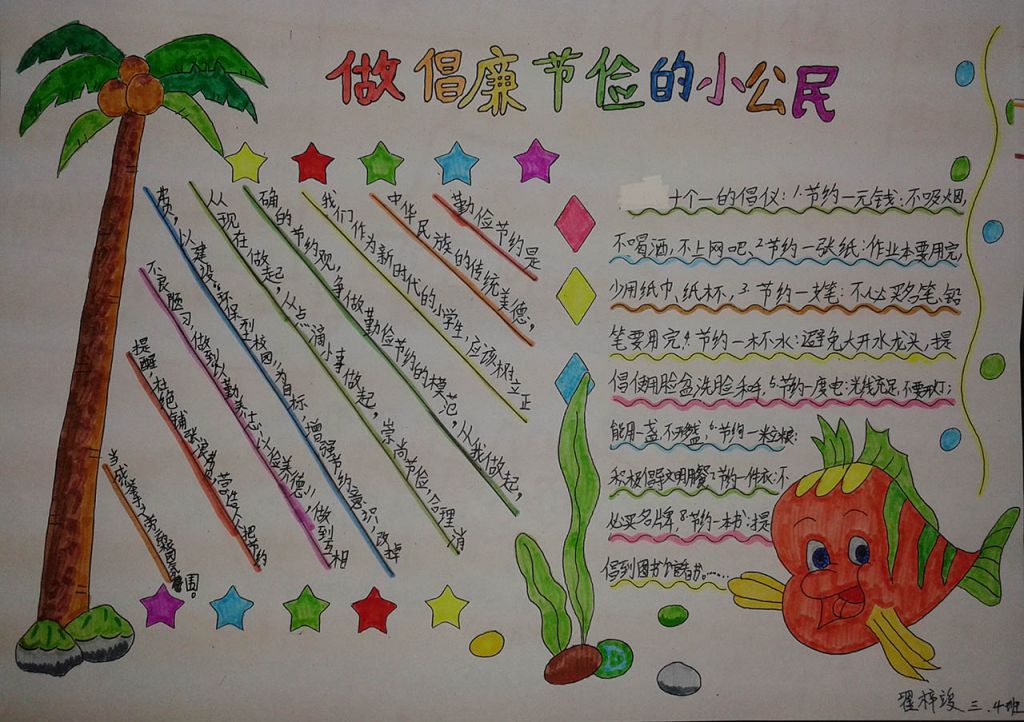 做倡廉节俭的小公民
勤俭节约是
中华民族的传统美德，
我们作为新时代的小学生，应该树立正
确的节约观，争做勤俭节约的模范，从我做起，
从现在做起，从点滴小事做起，崇尚节俭，合理消
费，以建设“环保型校园”为目标，增强节约意识，改掉
不良陋习，做到“以勤养志，以俭养德”，做到互相
提醒，杜绝铺张浪费，营造人人把节约
围。
十个一的倡仪：1.节约一元钱：不吸烟，
不喝酒，不上网吧、2节约一张纸：作业本要用完，
少用纸巾、纸杯，3.节约一支笔：不必买名笔、铅
笔要用完，4.节约一杯水：避免大开水龙头，提
倡使用脸盆洗脸和手，5.节约一度电：光线充足，不要开灯；
能用一盏，不开多盏，6.节约一粒粮：
积极倡导文明用餐，7.节约一件衣：不
必买名牌，8.节约一本书：提
倡到图书馆看书。……
翟梓竣 三.4班